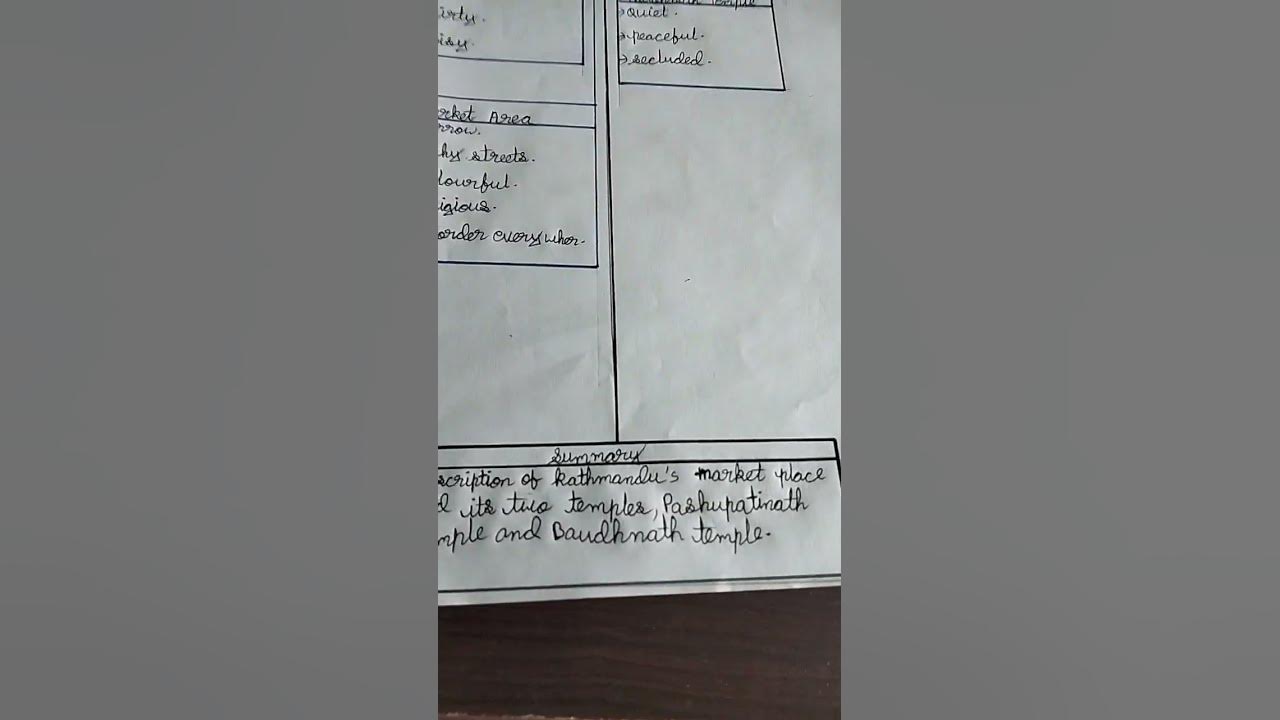 irty.
isy.
Temple
→quiet.
→peaceful.
→secluded.
rket Area
rrow.
hy streets.
lourful.
igious.
order everywher.
Summary
scription of Kathmandu's market place
d its two temples, Pashupatinath
mple and Baudhnath temple.